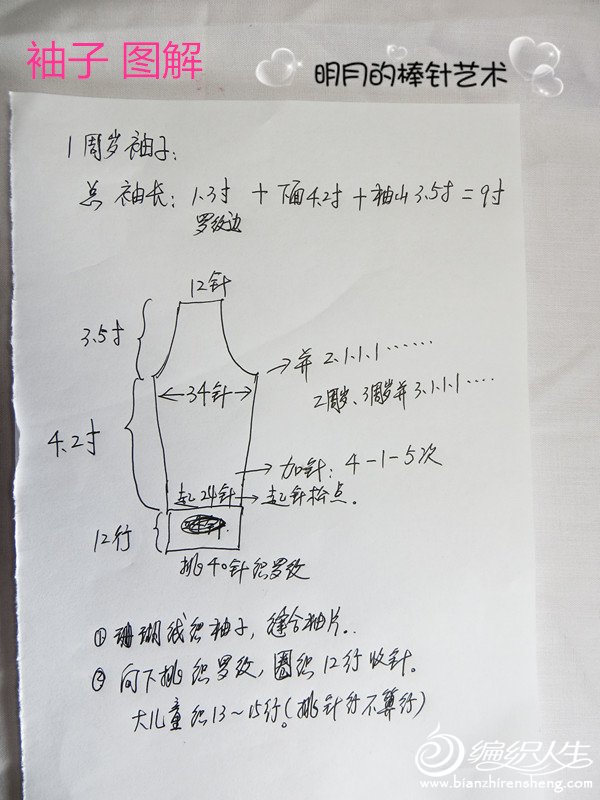 袖子 图解
明月的棒针艺术
1周岁袖子:
总袖长: 1.3寸 + 下面4.2寸 + 袖山3.5寸 = 9寸
罗纹边
12针
3.5寸
→ 并 2.1.1.1 ……
2周岁、3周岁并3.1.1.1 ….
←34针→
4.2寸
→ 加针: 4-1-5次
起24针 → 起针松点。
12行
挑40针织罗纹
① 珊瑚线织袖子, 缝合袖片..
② 向下挑织罗纹, 圈织12行收针。
大儿童织13~15行。(挑针行不算行)
编织人生
www.bianzhirensheng.com